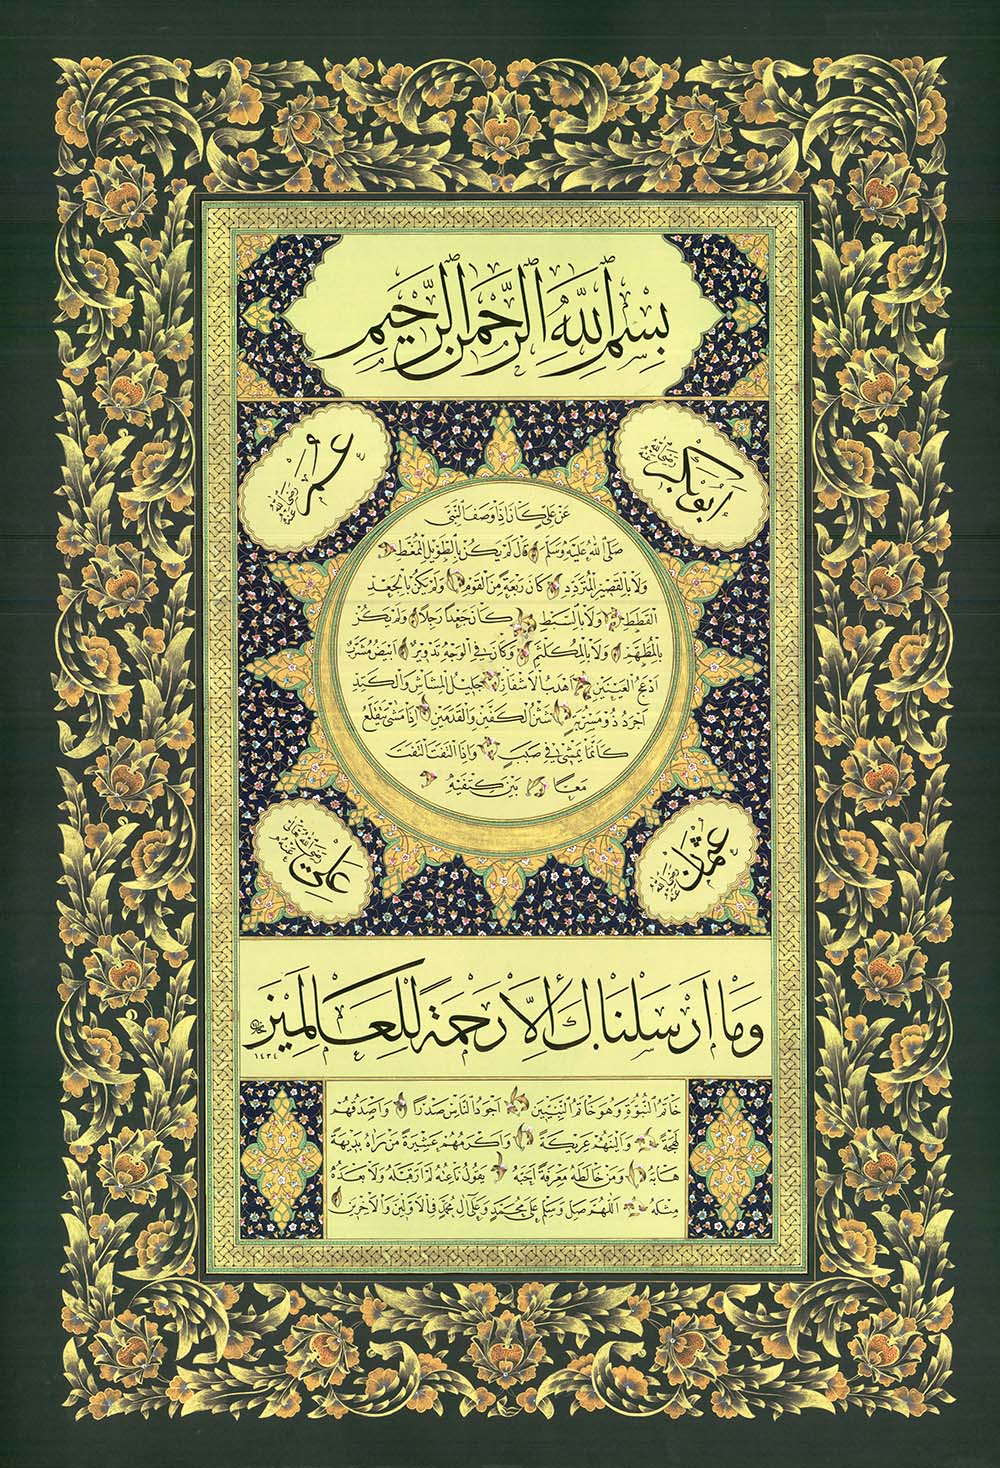 بِسْمِ اللهِ الرَّحْمٰنِ الرَّحِيمِ
أَبُو بَكْر رضي الله عنه
عُمَر رضي الله عنه
عَنْ عَلِيٍّ كَانَ اِذَا وَصَفَ النَّبِيَّ
صَلَّى اللهُ عَلَيْهِ وَسَلَّمَ قَالَ لَمْ يَكُنْ بِالطَّوِيلِ الْمُمَّغِطِ
وَلَا بِالْقَصِيرِ الْمُتَرَدِّدِ كَانَ رَبْعَةً مِنَ الْقَوْمِ وَلَمْ يَكُنْ بِالْجَعْدِ
الْقَطَطِ وَلَا بِالسَّبِطِ كَانَ جَعْدًا رَجِلًا وَلَمْ يَكُنْ
بِالْمُطَهَّمِ وَلَا بِالْمُكَلْثَمِ وَكَانَ فِي الْوَجْهِ تَدْوِيرٌ اَبْيَضُ مُشْرَبٌ
اَدْعَجُ الْعَيْنَيْنِ اَهْدَبُ الْاَشْفَارِ جَلِيلُ الْمُشَاشِ وَالْكَتَدِ
اَجْرَدُ ذُو مَسْرُبَةٍ شَثْنُ الْكَفَّيْنِ وَالْقَدَمَيْنِ اِذَا مَشَى يَتَقَلَّعُ
كَاَنَّمَا يَمْشِي فِي صَبَبٍ وَاِذَا الْتَفَتَ الْتَفَتَ
مَعًا بَيْنَ كَتِفَيْهِ
عُثْمَان رضي الله عنه
عَلِي رضي الله تعالى عنه
وَمَا اَرْسَلْنَاكَ اِلَّا رَحْمَةً لِلْعَالَمِينَ
١٤٣٤
خَاتَمُ النُّبُوَّةِ وَهُوَ خَاتَمُ النَّبِيِّينَ اَجْوَدُ النَّاسِ صَدْرًا وَاَصْدَقُهُمْ
لَهْجَةً وَاَلْيَنُهُمْ عَرِيكَةً وَاَكْرَمُهُمْ عَشِيرَةً مَنْ رَاٰهُ بَدِيهَةً
هَابَهُ وَمَنْ خَالَطَهُ مَعْرِفَةً اَحَبَّهُ يَقُولُ نَاعِتُهُ لَمْ اَرَ قَبْلَهُ وَلَا بَعْدَهُ
مِثْلَهُ اَللّٰهُمَّ صَلِّ وَسَلِّمْ عَلَى مُحَمَّدٍ وَعَلَى اٰلِ مُحَمَّدٍ فِي الْاَوَّلِينَ وَالْاٰخِرِينَ